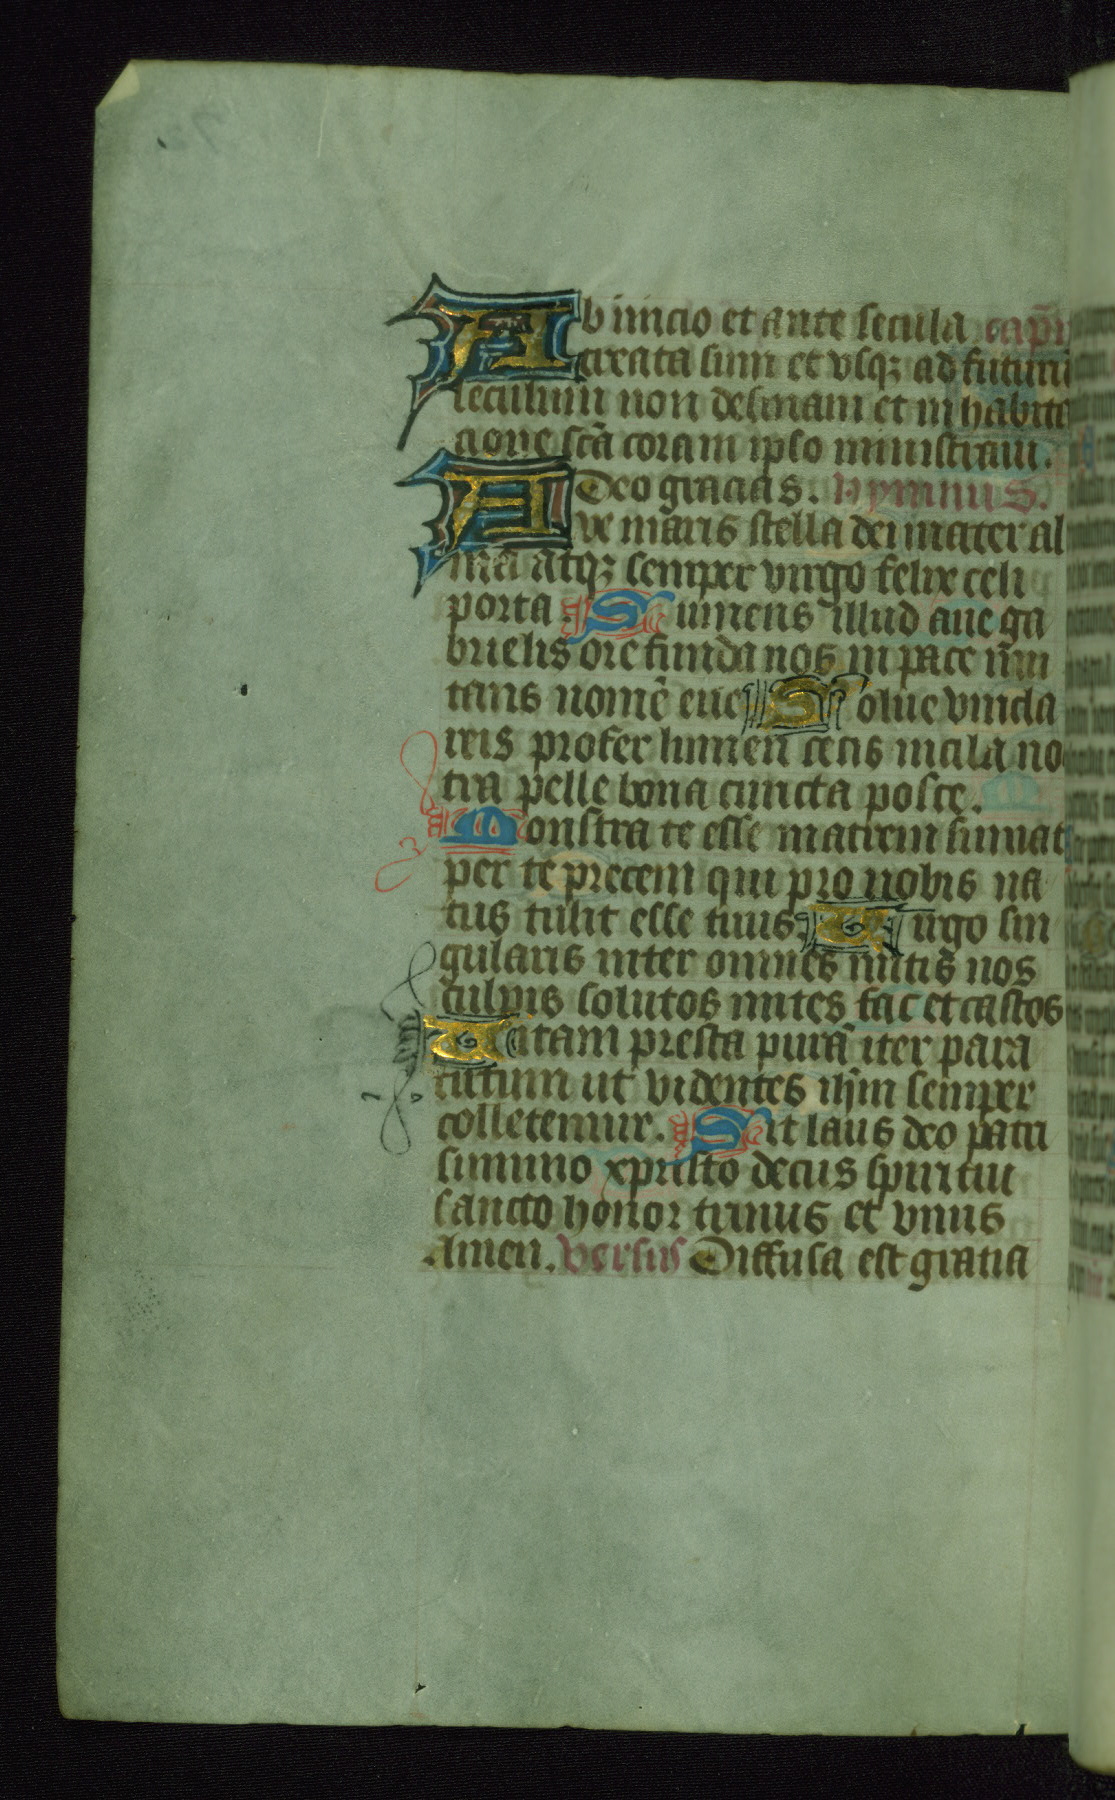 Ab inicio et ante secula cap̃
creata sum et vsqꝫ ad futurũ
seculum non desinam et in habita
cione sc̃a coram ipso ministraui.
Deo gracias. hympnus.
Ave maris stella dei mater al
ma atqꝫ semper virgo felix celi
porta Sumens illud aue ga
brielis ore funda nos in pace mu
tans nomẽ eue Solue vincla
reis profer lumen cecis mala no
tra pelle bona cuncta posce.
Monstra te esse matrem sumat
per te precem qui pro nobis na
tus tulit esse tuus Virgo sin
gularis inter omnes mitis nos
culpis solutos mites fac et castos
Vitam presta purã iter para
tutum ut videntes ihm semper
colletemur. Sit laus deo patri
summo xpristo decus spiritui
sancto honor trinus et vnus
Amen. versus Diffusa est gratia